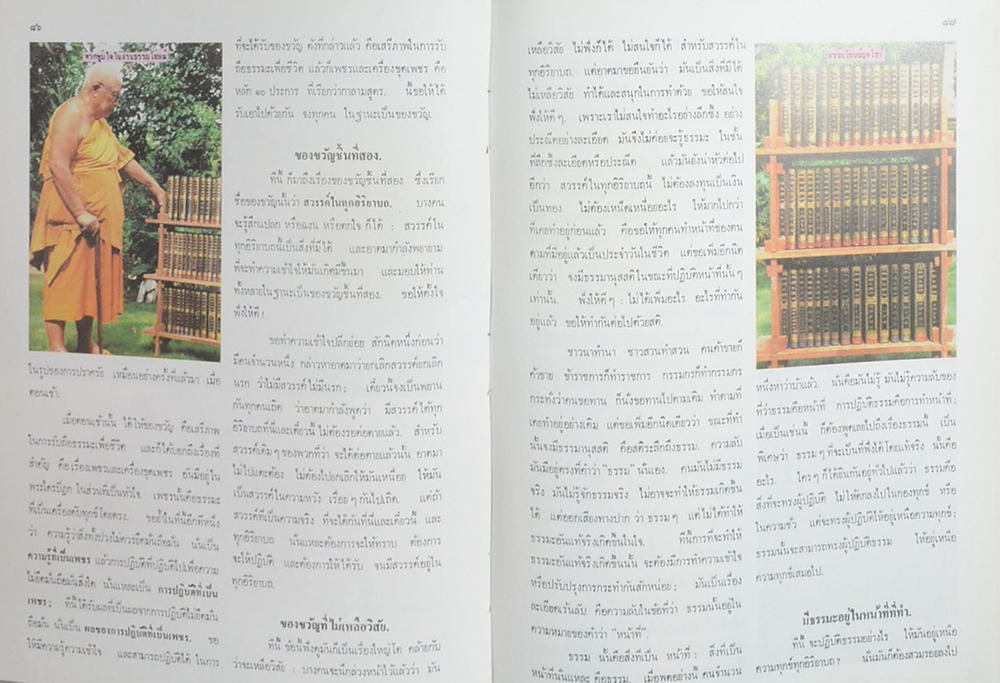 ๘๖
หากพูมิใจในงานธรรมโฆษณ์
ในรูปของการปราศรัย เหมือนอย่างครั้งที่แล้วมา เมื่อ
ตอนเช้า.
เมื่อตอนเช้านั้น ได้ให้ของขวัญ คือเสรีภาพ
ในการรับถือธรรมะเพื่อชีวิต และก็ได้บอกถึงเรื่องที่
สำคัญ คือ เรื่องเพชรและเครื่องขุดเพชร อันมีอยู่ใน
พระไตรปิฎก ในส่วนที่เป็นหัวใจ. เพชรนั้นคือธรรมะ
ที่เป็นเครื่องดับทุกข์โดยตรง. ขอย้ำในที่นี้อีกทีหนึ่ง
ว่า ความรู้ว่าสิ่งทั้งปวงไม่ควรยึดมั่นถือมั่น นั่นเป็น
ความรู้ที่เป็นเพชร แล้วการปฏิบัติที่ปฏิบัติไปเพื่อความ
ไม่ยึดมั่นถือมั่นสิ่งใด นั่นแหละเป็น การปฏิบัติที่เป็น
เพชร; ทีนี้ได้รับผลที่เป็นผลจากการปฏิบัติไม่ยึดมั่น
ถือมั่น นั่นเป็น ผลของการปฏิบัติที่เป็นเพชร. ขอ
ให้มีความรู้ความเข้าใจ และสามารถปฏิบัติได้ ในการ
ที่จะได้รับของขวัญ ดังที่กล่าวแล้ว คือเสรีภาพในการรับ
ถือธรรมะเพื่อชีวิต แล้วก็เพชรและเครื่องขุดเพชร คือ
หลัก ๑๐ ประการ ที่เรียกว่ากาลามสูตร. นี้ขอให้ได้
รับเอาไปด้วยกัน จงทุกคน ในฐานะเป็นของขวัญ.
ของขวัญชิ้นที่สอง.
ทีนี้ ก็มาถึงเรื่องของขวัญชิ้นที่สอง ซึ่งเรียก
ชื่อของขวัญนั้นว่า สวรรค์ในทุกอิริยาบถ. บางคน
จะรู้สึกแปลก หรือฉงน หรือตกใจ ก็ได้ : สวรรค์ใน
ทุกอิริยาบถนี้เป็นสิ่งที่มีได้ และอาตมากำลังพยายาม
ที่จะทำความเข้าใจให้มันเกิดมีขึ้นมา และมอบให้ท่าน
ทั้งหลายในฐานะเป็นของขวัญชิ้นที่สอง. ขอให้ตั้งใจ
ฟังให้ดี !
ขอทำความเข้าใจปลีกย่อย สักนิดหนึ่งก่อนว่า
มีคนจำนวนหนึ่ง กล่าวหาอาตมาว่ายกเลิกสวรรค์ยกเลิก
นรก ว่าไม่มีสวรรค์ ไม่มีนรก; เดี๋ยวนี้จงเป็นพยาน
กันทุกคนเถิด ว่าอาตมากำลังพูดว่า มีสวรรค์ได้ทุก
อิริยาบถที่นี่และเดี๋ยวนี้ ไม่ต้องรอต่อตายแล้ว. สำหรับ
สวรรค์เดิมๆ ของพวกที่ว่า จะได้ต่อตายแล้วนั้น อาตมา
ไม่ไปแตะต้อง ไม่ต้องไปยกเลิกให้มันเหนื่อย ให้มัน
เป็นสวรรค์ในความหวัง เรื่อยๆ กันไปเถิด. แต่ถ้า
สวรรค์ที่เป็นความจริง ที่จะได้กันที่นี่และเดี๋ยวนี้ และ
ทุกอิริยาบถ นั่นแหละต้องการจะให้ทราบ ต้องการ
จะให้ปฏิบัติ และต้องการให้ได้รับ จนมีสวรรค์อยู่ใน
ทุกอิริยาบถ.
ของขวัญที่ไม่เหลือวิสัย.
ทีนี้ ข้อนี้ฟังดูมันก็เป็นเรื่องใหญ่โต คล้ายกับ
ว่าจะเหลือวิสัย : บางคนจะนึกล่วงหน้าไว้แล้วว่า มัน
๘๗
เหลือวิสัย ไม่ฟังก็ได้ ไม่สนใจก็ได้ สำหรับสวรรค์ใน
ทุกอิริยาบถ. แต่อาตมาขอยืนยันว่า มันเป็นสิ่งที่มีได้
ไม่เหลือวิสัย ทำได้และสนุกในการทำด้วย ขอให้สนใจ
ฟังให้ดีๆ. เพราะเราไม่สนใจทำอะไรอย่างลึกซึ้ง อย่าง
ประณีตอย่างละเอียด มันจึงไม่ค่อยจะรู้ธรรมะ ในชั้น
ที่ลึกซึ้งละเอียดหรือประณีต แล้วมันยังน่าหัวต่อไป
อีกว่า สวรรค์ในทุกอิริยาบถนี้ ไม่ต้องลงทุนเป็นเงิน
เป็นทอง ไม่ต้องเหน็ดเหนื่อยอะไร ให้มากไปกว่า
ที่เคยทำอยู่ก่อนแล้ว คือขอให้ทุกคนทำหน้าที่ของตน
ตามที่มีอยู่แล้วเป็นประจำวันในชีวิต แต่ขอเพิ่มอีกนิด
เดียวว่า จงมีธรรมานุสสติในขณะที่ปฏิบัติหน้าที่นั้นๆ
เท่านั้น. ฟังให้ดีๆ : ไม่ได้เพิ่มอะไร อะไรที่ทำกัน
อยู่แล้ว ขอให้ทำกันต่อไปด้วยสติ.
ชาวนาทำนา ชาวสวนทำสวน คนค้าขายก็
ค้าขาย ข้าราชการก็ทำราชการ กรรมกรก็ทำกรรมกร
กระทั่งว่าคนขอทาน ก็นั่งขอทานไปตามเดิม ทำตามที่
เคยทำอยู่อย่างเดิม แต่ขอเพิ่มอีกนิดเดียวว่า ขณะที่ทำ
นั้นจงมีธรรมานุสสติ คือสติระลึกถึงธรรม. ความลับ
มันมีอยู่ตรงที่คำว่า “ธรรม” นั่นเอง. คนมันไม่มีธรรม
จริง มันไม่รู้จักธรรมจริง ไม่อาจจะทำให้ธรรมเกิดขึ้น
ได้ แต่ออกเสียงทางปาก ว่า ธรรมๆ แต่ไม่ได้ทำให้
ธรรมอันแท้จริงเกิดขึ้นในใจ. ทีนี้การที่จะทำให้
ธรรมอันแท้จริงเกิดขึ้นนั้น จะต้องมีการทำความเข้าใจ
หรือปรับปรุงการกระทำกันสักหน่อย; มันเป็นเรื่อง
ละเอียดเร้นลับ คือความลับในข้อที่ว่า ธรรมนั้นอยู่ใน
ความหมายของคำว่า “หน้าที่”.
ธรรม นั้นคือสิ่งที่เป็น หน้าที่ ; สิ่งที่เป็น
หน้าที่นั่นแหละ คือธรรม. เมื่อพูดอย่างนี้ คนจำนวน
หนึ่งหาว่าบ้าแล้ว. นั่นคือมันไม่รู้ มันไม่รู้ความลับของ
ที่ว่าธรรมคือหน้าที่ การปฏิบัติธรรมคือการทำหน้าที่;
เมื่อเป็นเช่นนี้ ก็ต้องพูดเลยไปถึงเรื่องธรรมนี้ เป็น
พิเศษว่า ธรรมๆ ที่จะเป็นที่พึ่งได้โดยแท้จริง นั้นคือ
อะไร. ใครๆ ก็ได้ยินกันอยู่ทั่วไปแล้วว่า ธรรมคือ
สิ่งที่จะทรงผู้ปฏิบัติ ไม่ให้ตกลงไปในกองทุกข์ หรือ
ในความชั่ว แต่จะทรงผู้ปฏิบัติให้อยู่เหนือความทุกข์;
ธรรมนั้นจะสามารถทรงผู้ปฏิบัติธรรม ให้อยู่เหนือ
ความทุกข์เสมอไป.
มีธรรมะอยู่ในหน้าที่ที่ทำ.
ทีนี้ จะปฏิบัติธรรมอย่างไร ให้มันอยู่เหนือ
ความทุกข์ทุกอิริยาบถ? นั่นมันก็ต้องสวมรอยลงไป